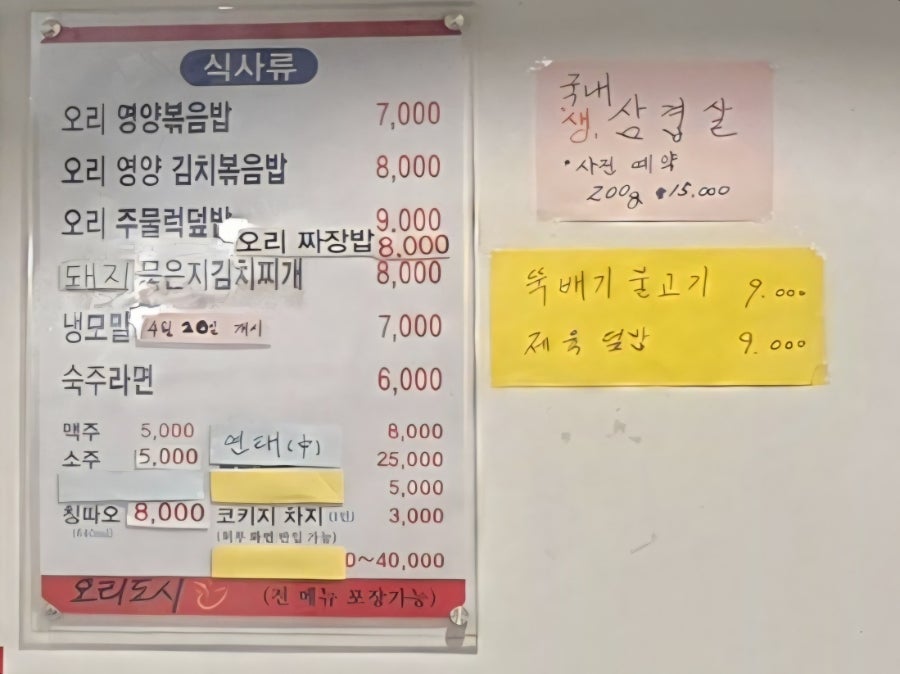 식사류
오리 영양볶음밥 7,000
오리 영양 김치볶음밥 8,000
오리 주물럭덮밥 9.000
오리 짜장밥 8.000
돼지 묵은지김치찌개 8,000
냉모밀 4월 20일 개시 7,000
숙주라면 6,000
맥주 5,000 연태(中) 8,000
소주 5,000 25,000
5,000
칭따오 8,000 코키지 차지 (1인) 3,000
0~40,000
오리도시 (전 메뉴 포장가능)
국내
생. 삼겹살
• 사전 예약
200g 15.000
뚝배기 불고기 9.000
제육 덮밥 9.000